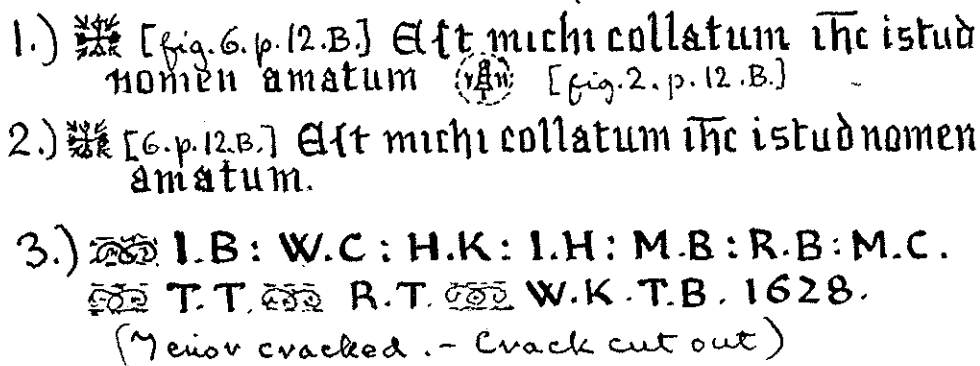 1.) [fig. 6. p. 12. B.] Est michi collatum ihc istud
nomen amatum [fig. 2. p. 12. B.]
2.) [6. p. 12. B.] Est michi collatum ihc istud nomen
amatum.
3.) I.B : W.C : H.K : I.H : M.B : R.B : M.C.
T.T. R.T. W.K. T.B. 1628.
(Tenor cracked. - Crack cut out)